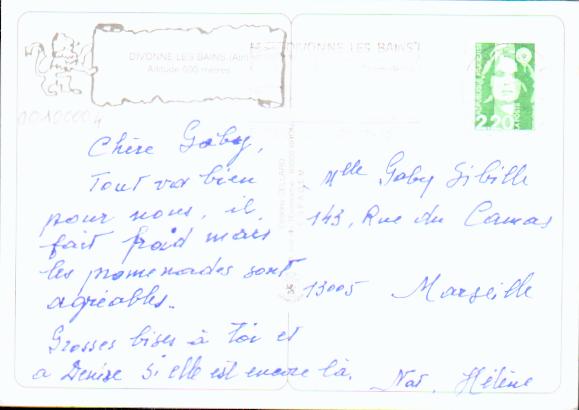 DIVONNE LES BAINS (Ain)
Altitude 500 mètres
DIVONNE LES BAINS
2,20
00100004
Chère Gaby,
Tout va bien
pour nous, il
fait froid mais
les promenades sont
agréables.
Grosses bises à toi et
a Denise si elle est encore là.
Mlle Gaby Sibille
143, Rue du Camas
13005 Marseille
Nat. Hélène